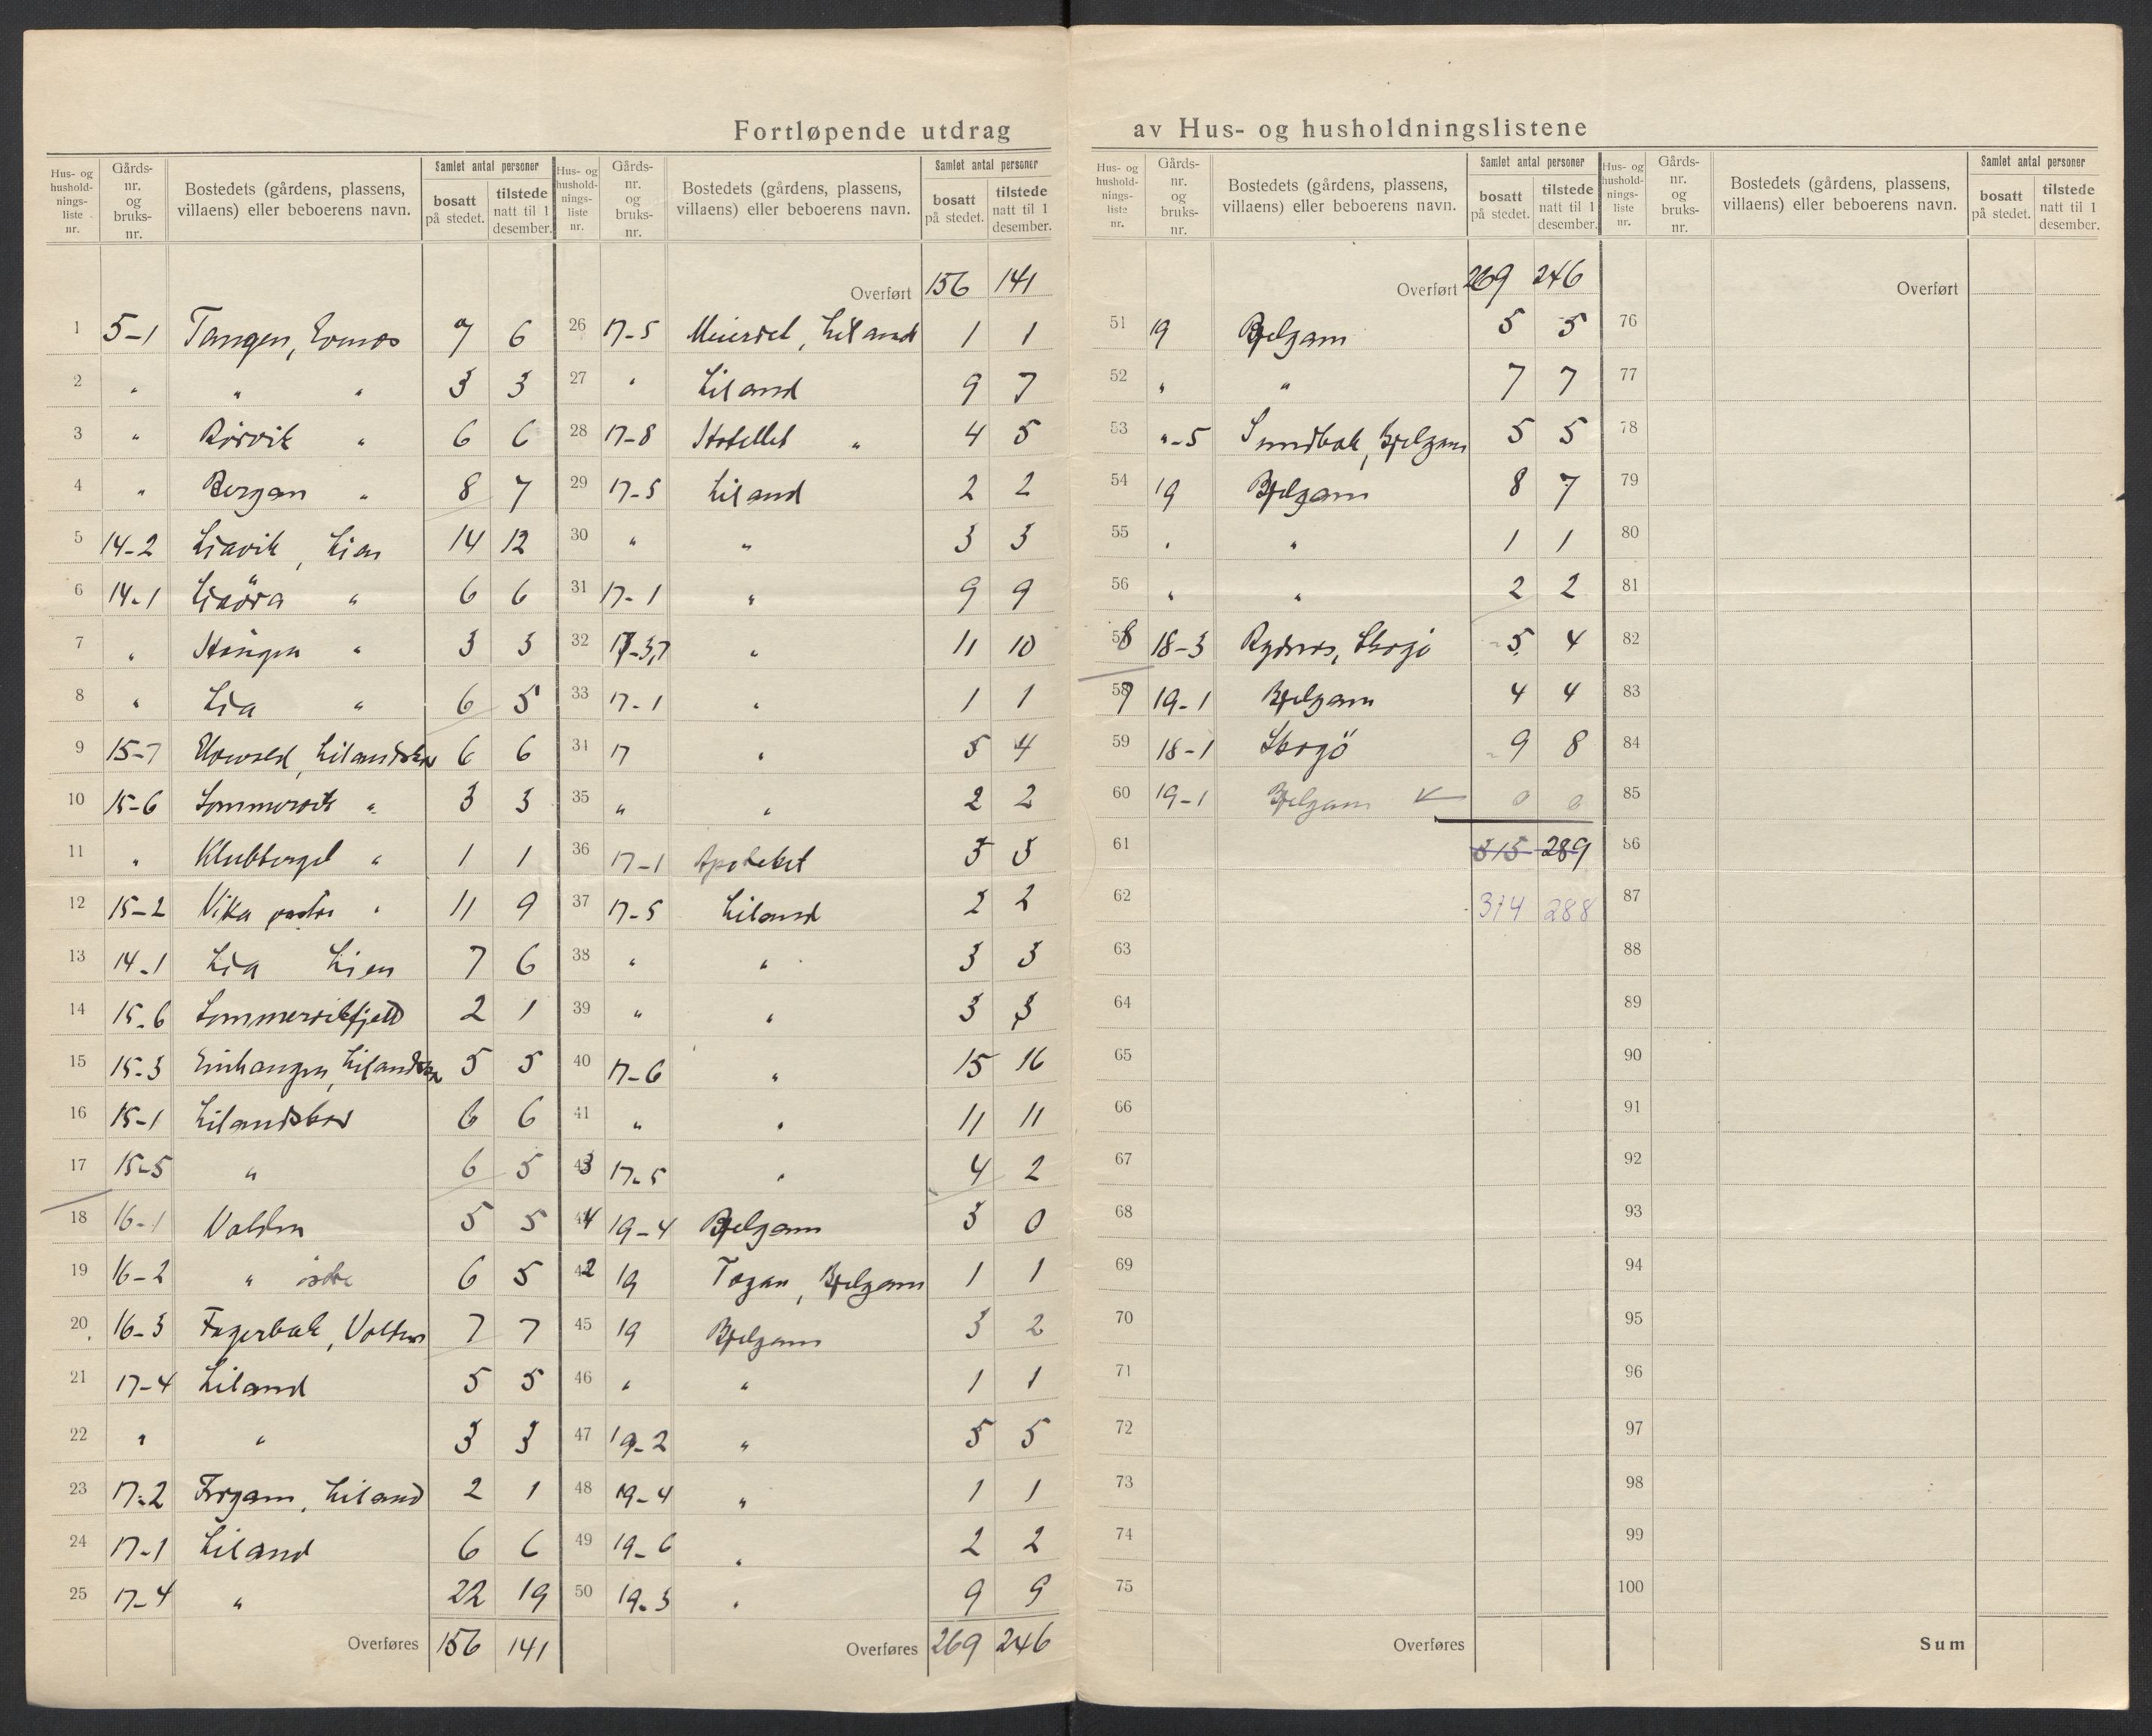 Fortløpende utdrag av Hus- og husholdningslistene
Hus- og hushold-nings-liste nr. | Gårds-nr. og bruks-nr. | Bostedets (gårdens, plassens, villaens) eller beboerens navn. | Samlet antal personer bosatt på stedet. | tilstede natt til 1 desember.
1 5-1 Tangen, 7 6
2 " " " 3 3
3 " Rörvik " 6 6
4 " Bergan " 8 7
5 14-2 Liavik, Lien 14 12
6 14-1 Liaöra " 6 6
7 " " 3 3
8 " Lia " 6 5
9 15-7 6 6
10 15-6 Sommervik " 3 3
11 " Klubberget " 1 1
12 15-2 Vika " 11 9
13 14-1 Lia Lien 7 6
14 15-6 Sommervikfjell 2 1
15 15-3 5 5
16 15-1 6 6
17 15-5 " 6 5
18 16-1 5 5
19 16-2 " östre 6 5
20 16-3 Fagerbak, 7 7
21 17-4 Liland 5 5
22 " " 3 3
23 17-2 Liland 2 1
24 17-1 Liland 6 6
25 17-4 " 22 19
Overføres 156 141
Hus- og hushold-nings-liste nr. | Gårds-nr. og bruks-nr. | Bostedets (gårdens, plassens, villaens) eller beboerens navn. | Samlet antal personer bosatt på stedet. | tilstede natt til 1 desember.
Overført 156 141
26 17-5 Meieriet, Liland 1 1
27 " Liland 9 7
28 17-8 Hotellet " 4 5
29 17-5 Liland 2 2
30 " " 3 3
31 17-1 " 9 9
32 17-3,7 " 11 10
33 17-1 " 1 1
34 17 " 5 4
35 " " 2 2
36 17-1 Apoteket
37 17-5 Liland 2 2
38 " " 3 3
39 " " 3 3
40 17-6 " 15 16
41 " " 11 11
43 17-5 " 4 2
44 19-4 Bjelgam 3 0
42 19 Bjelgam 1 1
45 19 Bjelgam 3 2
46 " " 1 1
47 19-2 " 5 5
48 19-4 " 1 1
49 19-6 " 2 2
50 19-3 " 9 9
Overføres 269 246
Hus- og hushold-nings-liste nr. | Gårds-nr. og bruks-nr. | Bostedets (gårdens, plassens, villaens) eller beboerens navn. | Samlet antal personer bosatt på stedet. | tilstede natt til 1 desember.
Overført 269 246
51 19 Bjelgam 5 5
52 " " 7 7
53 "-5 Sundbak, Bjelgam 5 5
54 19 Bjelgam 8 7
55 " " 1 1
56 " " 2 2
58 18-3 Rydnes, Skogö 5 4
57 19-1 Bjelgam 4 4
59 18-1 Skogö 9 8
60 19-1 Bjelgam 0 0
61 315 289
62 314 288
63
64
65
66
67
68
69
70
71
72
73
74
75
Overføres
Hus- og hushold-nings-liste nr. | Gårds-nr. og bruks-nr. | Bostedets (gårdens, plassens, villaens) eller beboerens navn. | Samlet antal personer bosatt på stedet. | tilstede natt til 1 desember.
Overført
76
77
78
79
80
81
82
83
84
85
86
87
88
89
90
91
92
93
94
95
96
97
98
99
100
Sum